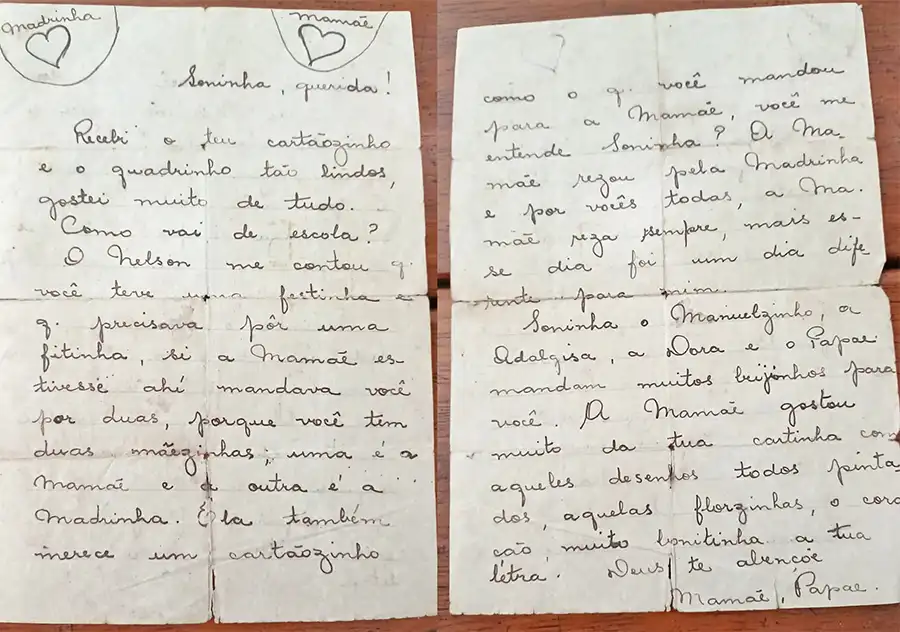 Madrinha
Mamãe
Soninha, querida!
Recebi o teu cartãozinho
e o quadrinho tão lindos,
gostei muito de tudo.
Como vai de escola?
O Nelson me contou q.
você teve uma festinha e
q. precisava pôr uma
fitinha, si a Mamãe es-
tivesse ahí mandava você
por duas, porque você tem
duas mãezinhas; uma é a
Mamãe e a outra é a
Madrinha. Ela também
merece um cartãozinho
como o q. você mandou
para a Mamãe, você me
entende Soninha? A Ma-
mãe rezou pela Madrinha
e por vocês todas, a Ma-
mãe reza sempre, mais es-
se dia foi um dia dife
rente para mim.
Soninha o Manuelzinho, a
Adalgisa, a Dora e o Papae
mandam muitos beijinhos para
você. A Mamãe gostou
muito da tua cartinha com
aqueles desenhos todos pinta-
dos, aquelas florzinhas, o cora
ção, muito bonitinha a tua
létra. Deus te abençõe
Mamãe, Papae.